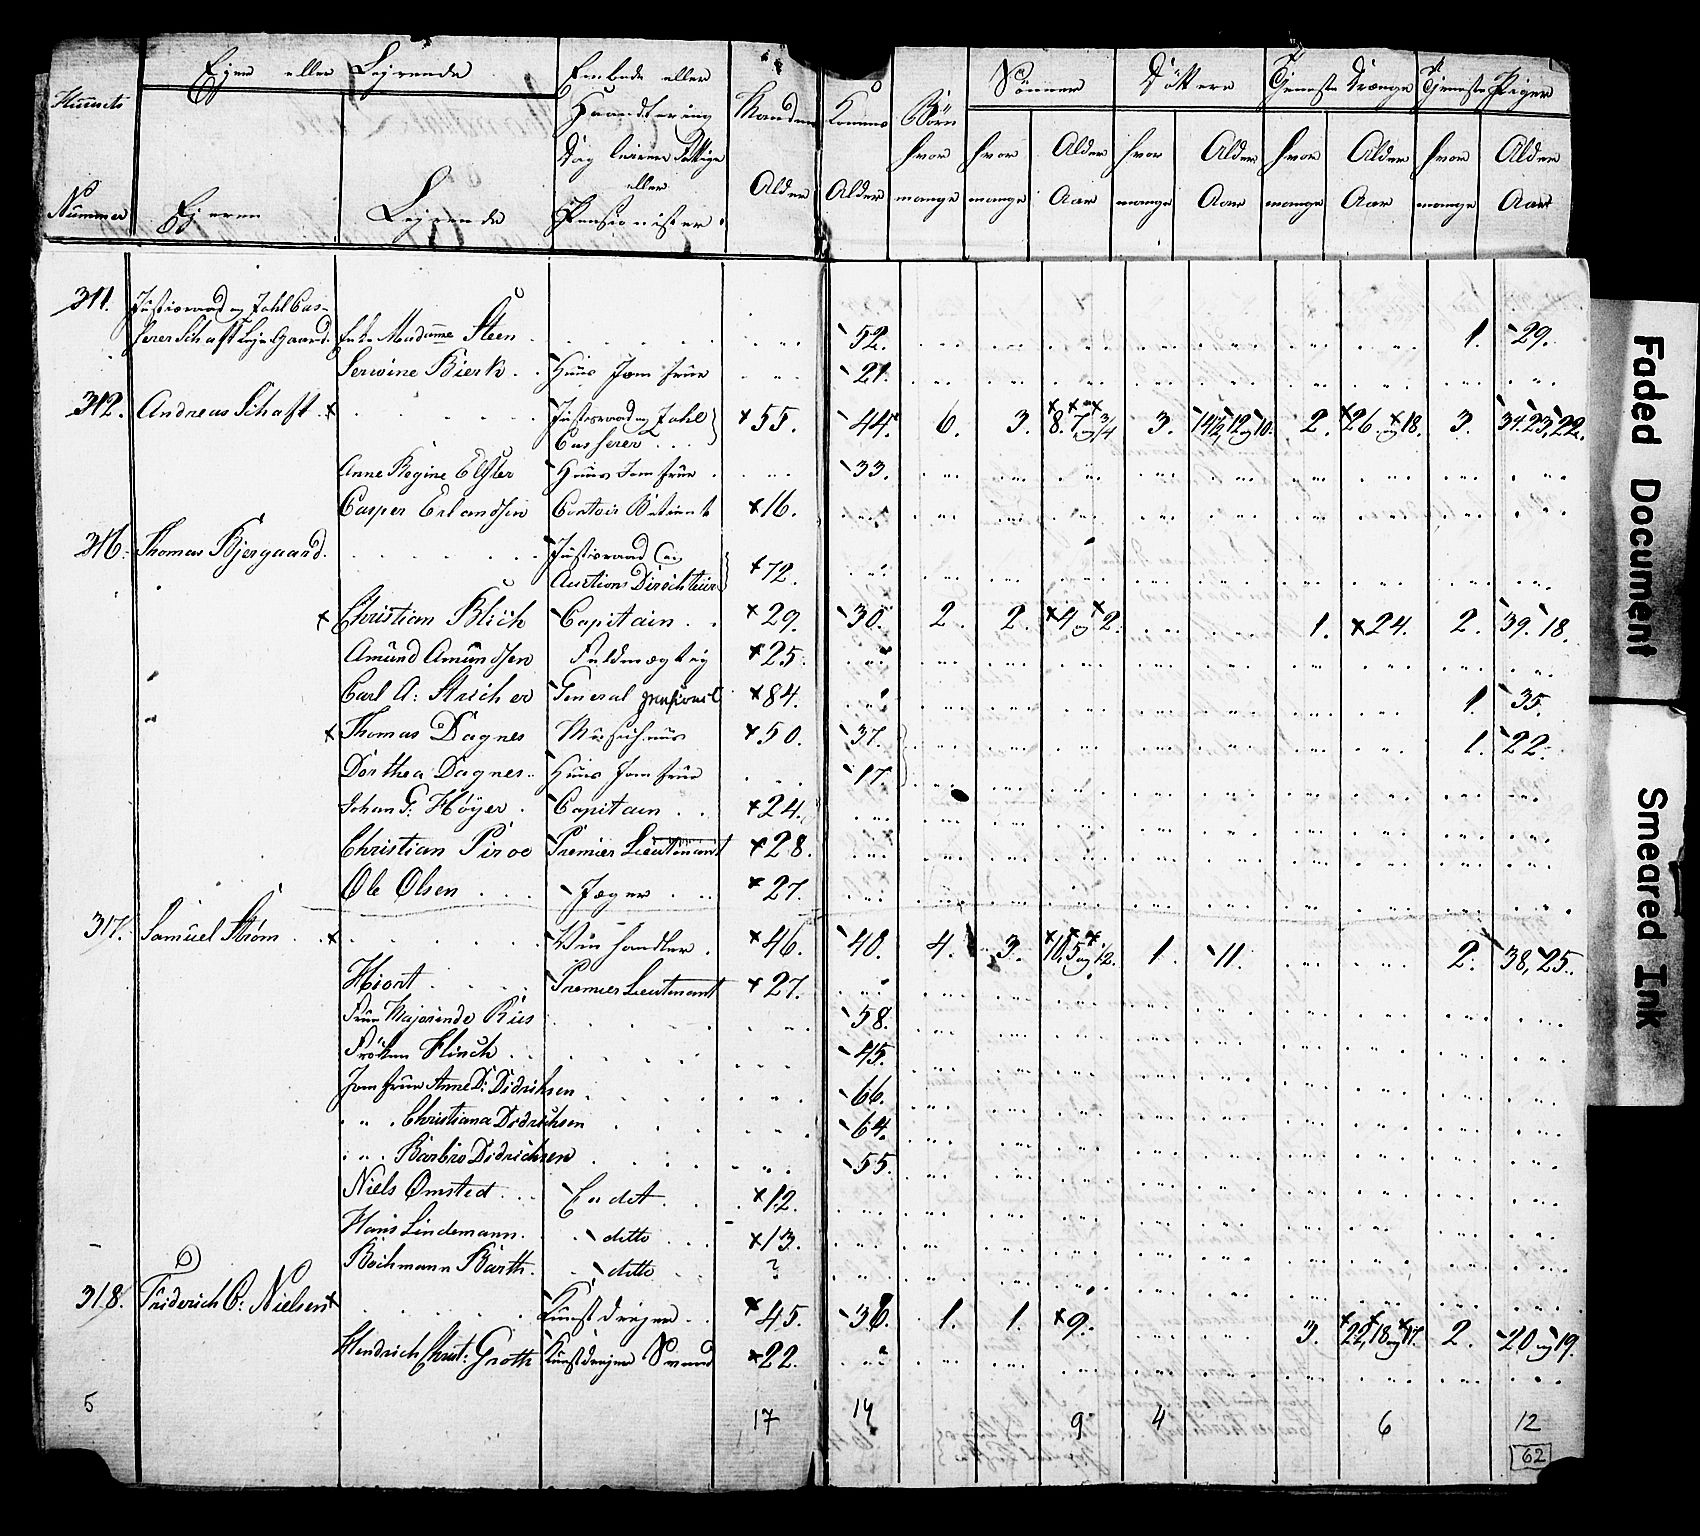 Huusets Nummer
Ejer eller Lejende
Ejeren
Lejende
Embede eller Haandtering Dag leiere Fattige eller Pensionister.
Manden Alder
Konens Alder
Börn hvor mange
Sönner hvor mange Alder Aar
Döttere hvor mange Alder Aar
Tjeneste Drænge hvor mange Alder Aar
Tjeneste Piger hvor mange Alder Aar
311. Justisraad og Zahl Cas-
serer Schaft Leje Gaard. Enke Madamme Steen 52. 1. 29.
Serivine Bierk Huus Jomfrue 21.
312. Andreas Schaft x Justisraad og Zahl Casserer x55. 44. 6. 3. x8. x7 og x3/4 3. 14½, 12 og 10. 2. x26 og x18. 3. 34. 23, 22.
Anne Regine Elster Huus Jomfrue 33.
Casper Erlandsen Contoir Betient x16.
316. Thomas Bjergaard. Justisraad og Auctions Directeur x72.
x Christian Blich Capitain x29. 30. 2. 2. x4 og x2. 1. x24. 2. 39. 18.
Amund Amundsen Fuldmægtig x25.
Carl A: Stricker General pensionet x84. 1. 35.
x Thomas Dagnes Musichuus x50. 37. 1. 22.
Dorthea Dagnes Huus Jomfrue 17.
Johan G. Höyer Capitain x24.
Christian Piroe Premier Lieutenant x28.
Ole Olsen Jæger x27.
317. Samuel Strøm x Viin handler x46. 40. 4. 3. x10, x5 og x½. 1. 11. 2. 38, 25.
Hiort Premier Lieutenant x27.
Frue Majorinde Rüs 58.
Fröken Hinsch 45.
Jomfrue Anne D: Didrichsen 66.
" " Christiana Didrichsen 64.
" " Barbro Didrichsen 55.
Niels Omsted Cadet x12.
Hans Lindemann ditto x13.
Bochmann Barth ditto ?
318. Friderich C: Nielsen x Kunstdrejer x45. 36. 1. 1. x9. 3. x22, x18 og x17. 2. 20 og 19.
Hendrich Christ: Groth Kunstdrejer Svend x22.
5 17 14 9 4 6 12
62
Faded Document
Smeared Ink